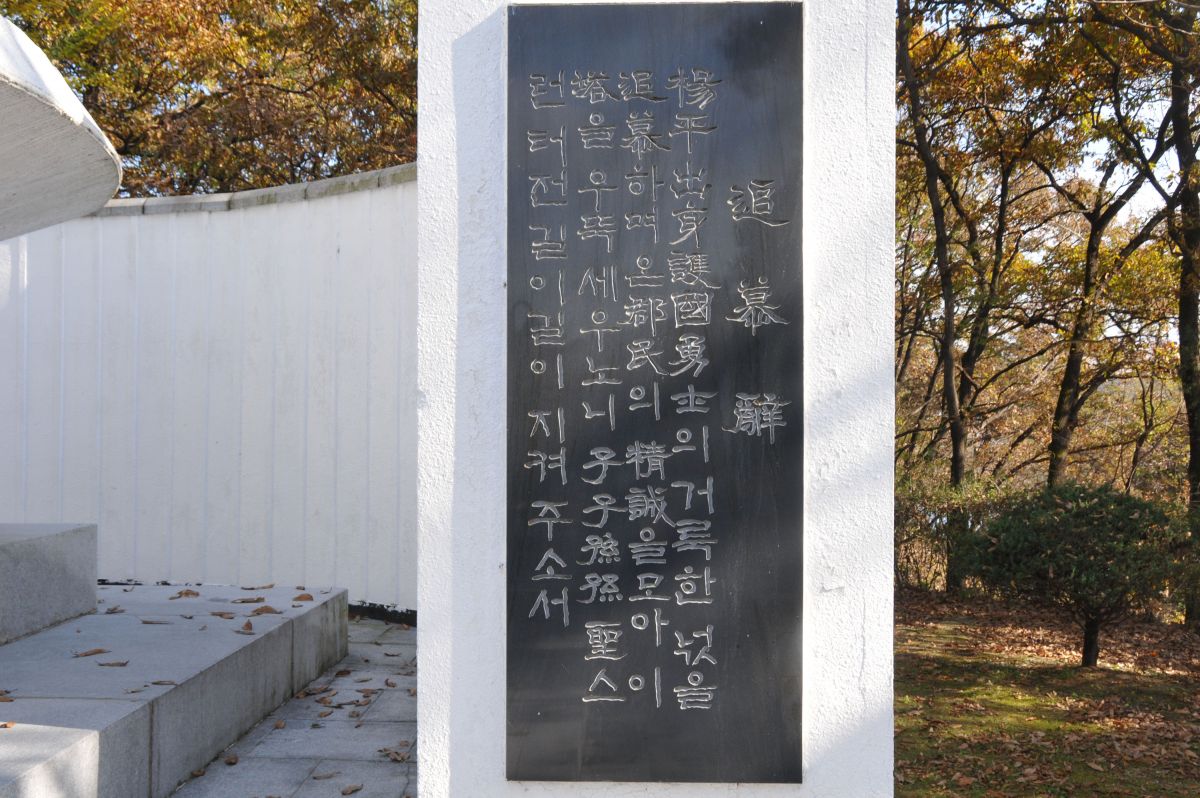 追慕辭
楊平出身護國勇士의 거룩한 넋을
追慕하며 온郡民의 精誠을 모아 이
塔을 우뚝 세우노니 子子孫孫 聖스
런 터전 길이길이 지켜주소서